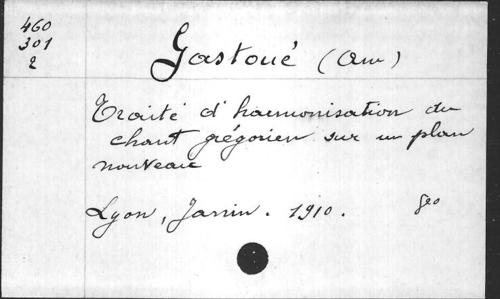 460
301
2
Gastoué (Am)
Traité d'harmonisation du
chant grégorien sur un plan
nouveau
Lyon, Janin. 1910. 8vo